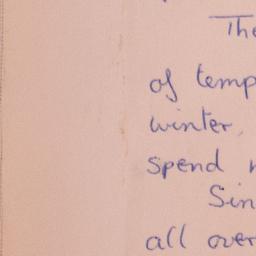 The
of temp
winter,
spend
Sin
all over